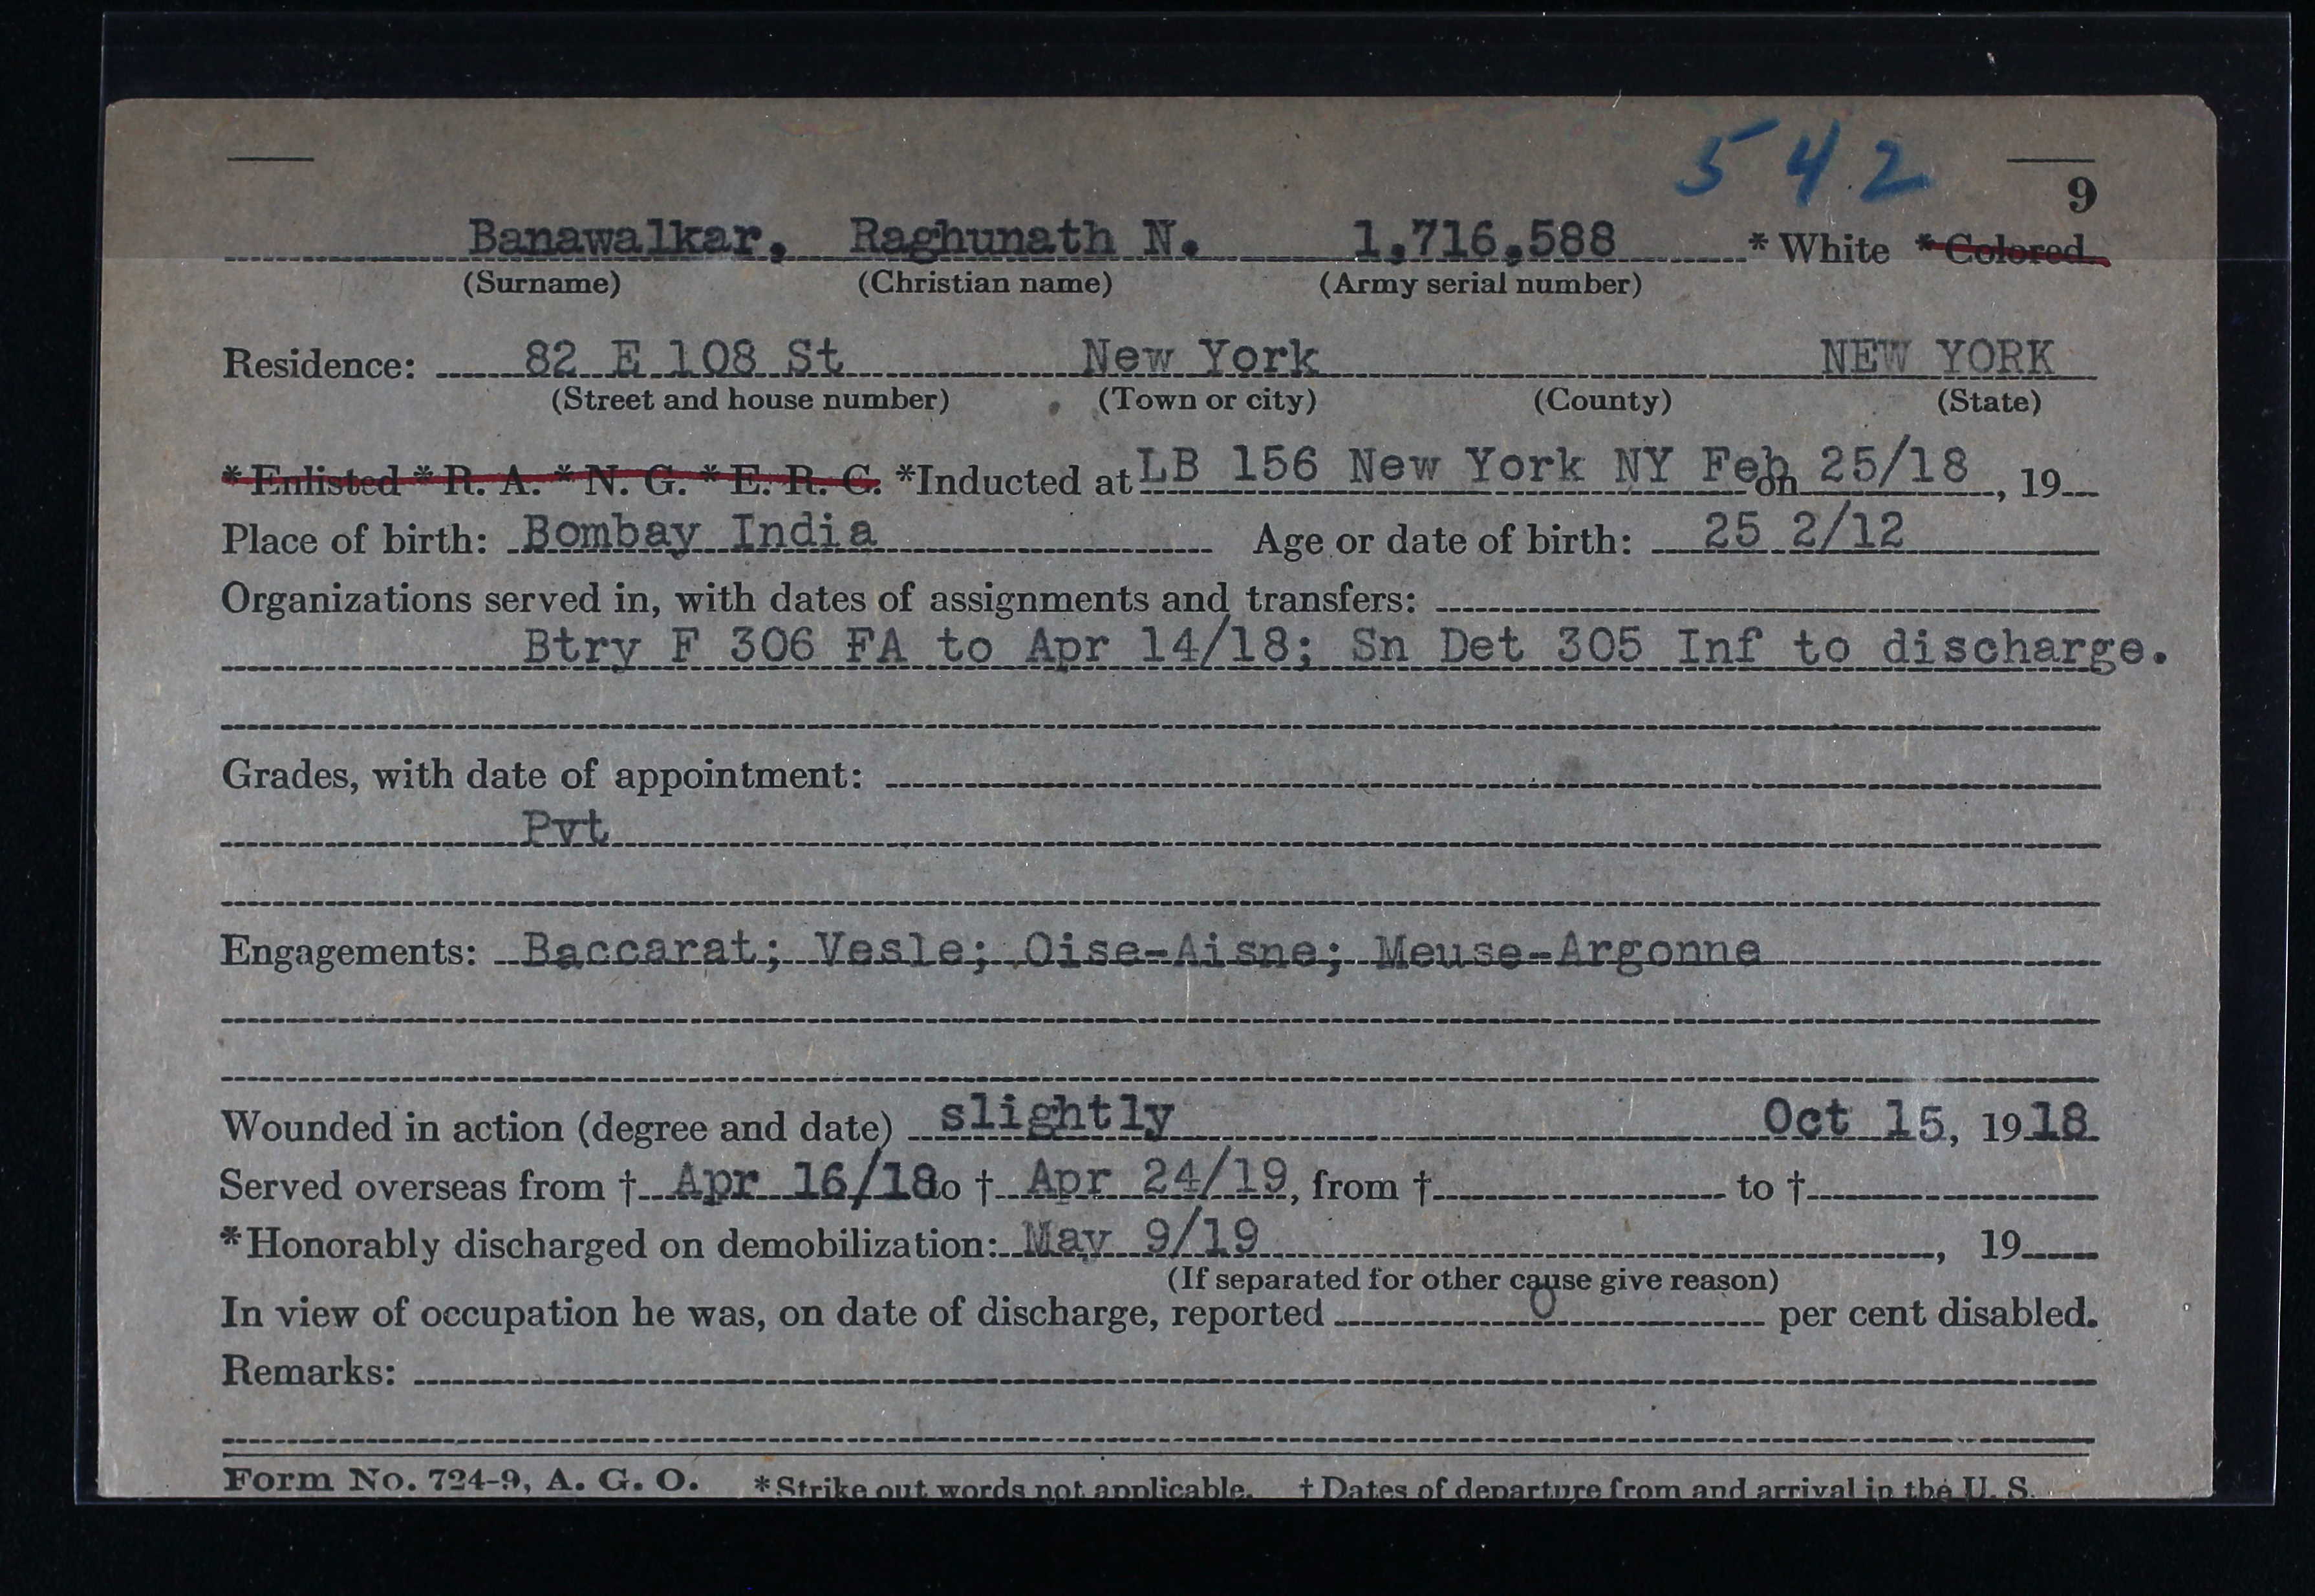 542
9
Banawalkar, Raghunath N. 1,716,588 * White * Colored
(Surname) (Christian name) (Army serial number)
Residence: 82 E 108 St New York NEW YORK
(Street and house number) (Town or city) (County) (State)
* Enlisted * R. A. * N. G. * E. R. C. *Inducted at LB 156 New York NY Feb on 25/18, 19
Place of birth: Bombay India Age or date of birth: 25 2/12
Organizations served in, with dates of assignments and transfers:
Btry F 306 FA to Apr 14/18; Sn Det 305 Inf to discharge.
Grades, with date of appointment:
Pvt
Engagements: Baccarat; Vesle; Oise-Aisne; Meuse-Argonne
Wounded in action (degree and date) slightly Oct 15, 1918
Served overseas from † Apr 16/18 to † Apr 24/19, from † to †
*Honorably discharged on demobilization: May 9/19, 19
(If separated for other cause give reason)
In view of occupation he was, on date of discharge, reported 0 per cent disabled.
Remarks:
Form No. 724-9, A. G. O. *Strike out words not applicable. † Dates of departure from and arrival in the U. S.